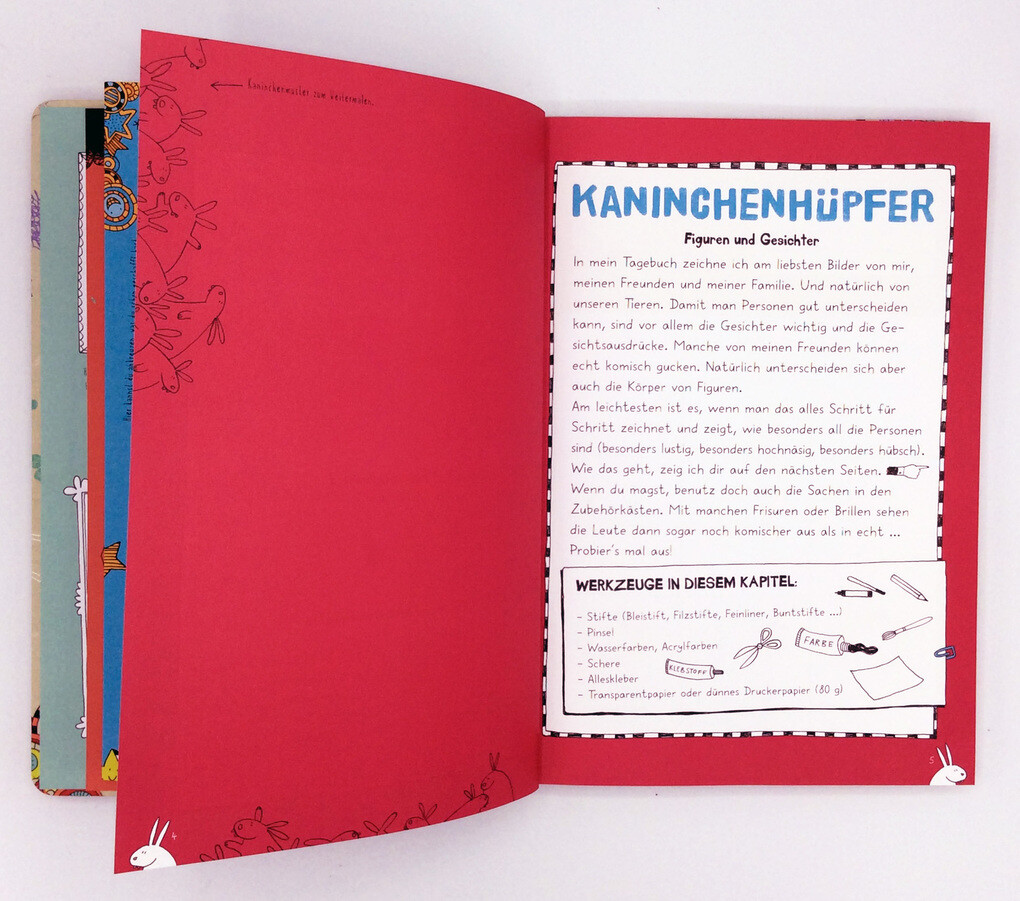 Kaninchenmuster zum Weitermalen.
4
KANINCHENHÜPFER
Figuren und Gesichter
In mein Tagebuch zeichne ich am liebsten Bilder von mir,
meinen Freunden und meiner Familie. Und natürlich von
unseren Tieren. Damit man Personen gut unterscheiden
kann, sind vor allem die Gesichter wichtig und die Ge-
sichtsausdrücke. Manche von meinen Freunden können
echt komisch gucken. Natürlich unterscheiden sich aber
auch die Körper von Figuren.
Am leichtesten ist es, wenn man das alles Schritt für
Schritt zeichnet und zeigt, wie besonders all die Personen
sind (besonders lustig, besonders hochnäsig, besonders hübsch).
Wie das geht, zeig ich dir auf den nächsten Seiten.
Wenn du magst, benutz doch auch die Sachen in den
Zubehörkästen. Mit manchen Frisuren oder Brillen sehen
die Leute dann sogar noch komischer aus als in echt ...
Probier's mal aus!
WERKZEUGE IN DIESEM KAPITEL:
- Stifte (Bleistift, Filzstifte, Feinliner, Buntstifte ...)
- Pinsel
- Wasserfarben, Acrylfarben
- Schere
- Alleskleber
- Transparentpapier oder dünnes Druckerpapier (80 g)
KLEBSTOFF
FARBE
5